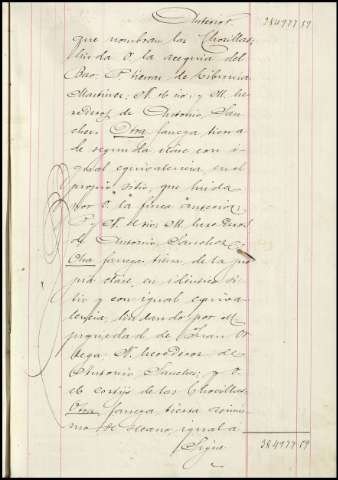 Anterior 384977.59
que nombran las Chorillas,
linda O. la acequia del
Bao. P. tierras de Ciberencia
Martinez; N. el rio, y M. he
rederos de Antonio San
chez. Otra fanega tierra
de segunda clase con i-
gual equivalencia, en el
propio sitio, que linda
por O. la finca anterior
P. y N. el rio M. herederos
de Antonio Sanchez.
Otra fanega tierra de la pro
pia clase, en identico si-
tio y con igual equiva-
lencia, lindando por M.
propiedad de Juan
Vega N. herederos de
Antonio Sanchez; y O.
el cortijo de las Chorillas.
Otra fanega tierra
de secano, igual a
Sigue 384977.59